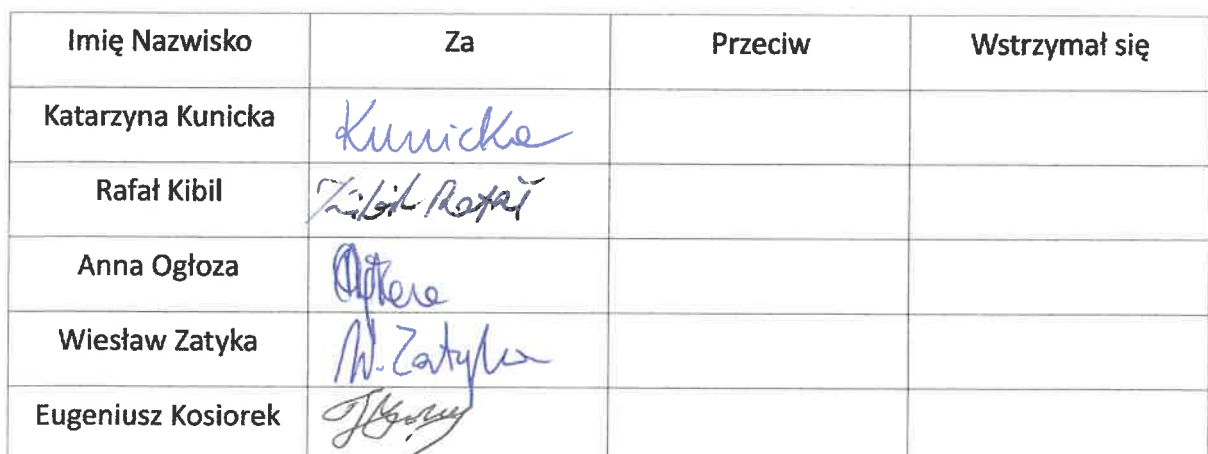 Imię Nazwisko Za Przeciw Wstrzymał się
Katarzyna Kunicka Kunicka
Rafał Kibil Kibil Rafał
Anna Ogłoza
Wiesław Zatyka W. Zatyka
Eugeniusz Kosiorek